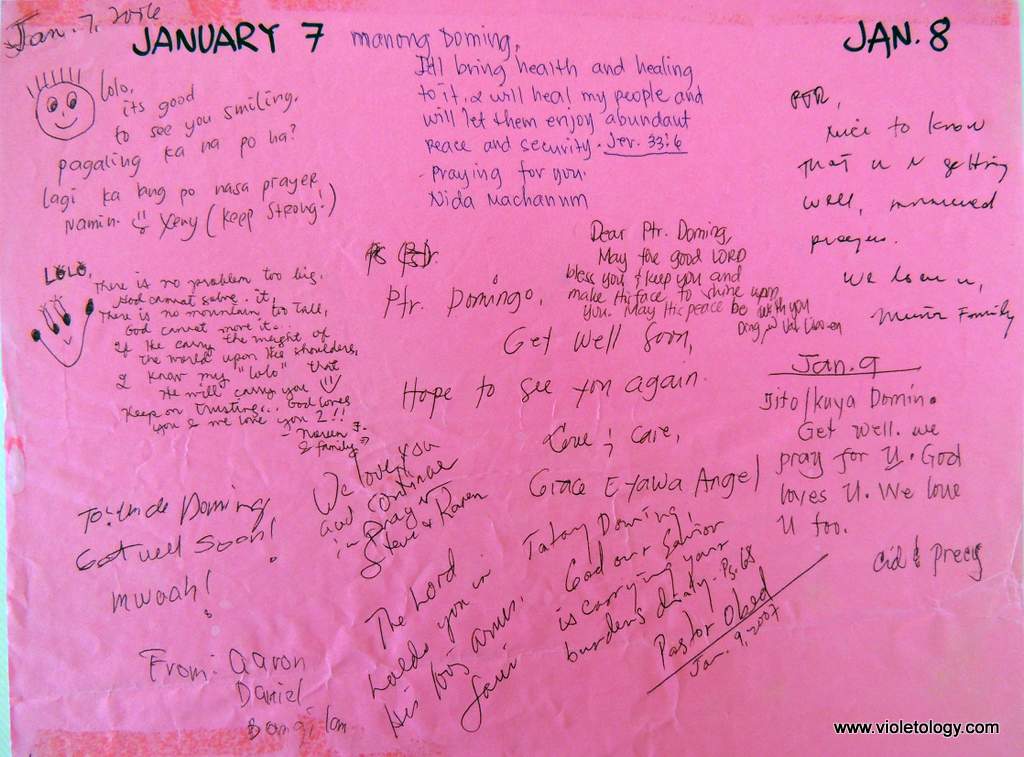 Jan. 7, 2006
JANUARY 7
lolo,
its good
to see you smiling.
pagaling ka na po ha?
lagi ka lang po nasa prayer
namin. Xeny (keep strong!)
manong Doming,
I'll bring health and healing
to it, & will heal my people and
will let them enjoy abundant
peace and security. Jer. 33:6
- Praying for you.
Nida
JAN. 8
PTR,
nice to know
that u r getting
well, answered
prayers.
We love u,
Family
LOLO,
There is no problem too big,
God cannot solve it,
There is no mountain too tall,
God cannot move it.
If He carry the weight of
the world upon His shoulders,
I know my "lolo" that
He will carry you
Keep on trusting... God loves
you & we love you 2!!
- Noreen F.
& family
Ptr. Domingo,
Get Well Soon,
Hope to see you again.
Love & Care,
Grace Eyawa Angel
Dear Ptr. Doming,
May the good LORD
bless you & keep you and
make His face to shine upon
you. May His peace be with you
Jan. 9
Tito/kuya Domin.
Get Well. we
pray for U. God
loves U. We love
U too.
Cid & Precy
To: Uncle Doming
Get well soon!
mwaah!
From: Aaron
Daniel
We love you
and continue
in Prayer
Steve & Karen
The Lord
holds you in
His big arms.
Tatay Doming,
God our Savior
is carrying your
burdens daily. Ps. 68
Pastor Obed
Jan. 9, 2007
www.violetology.com